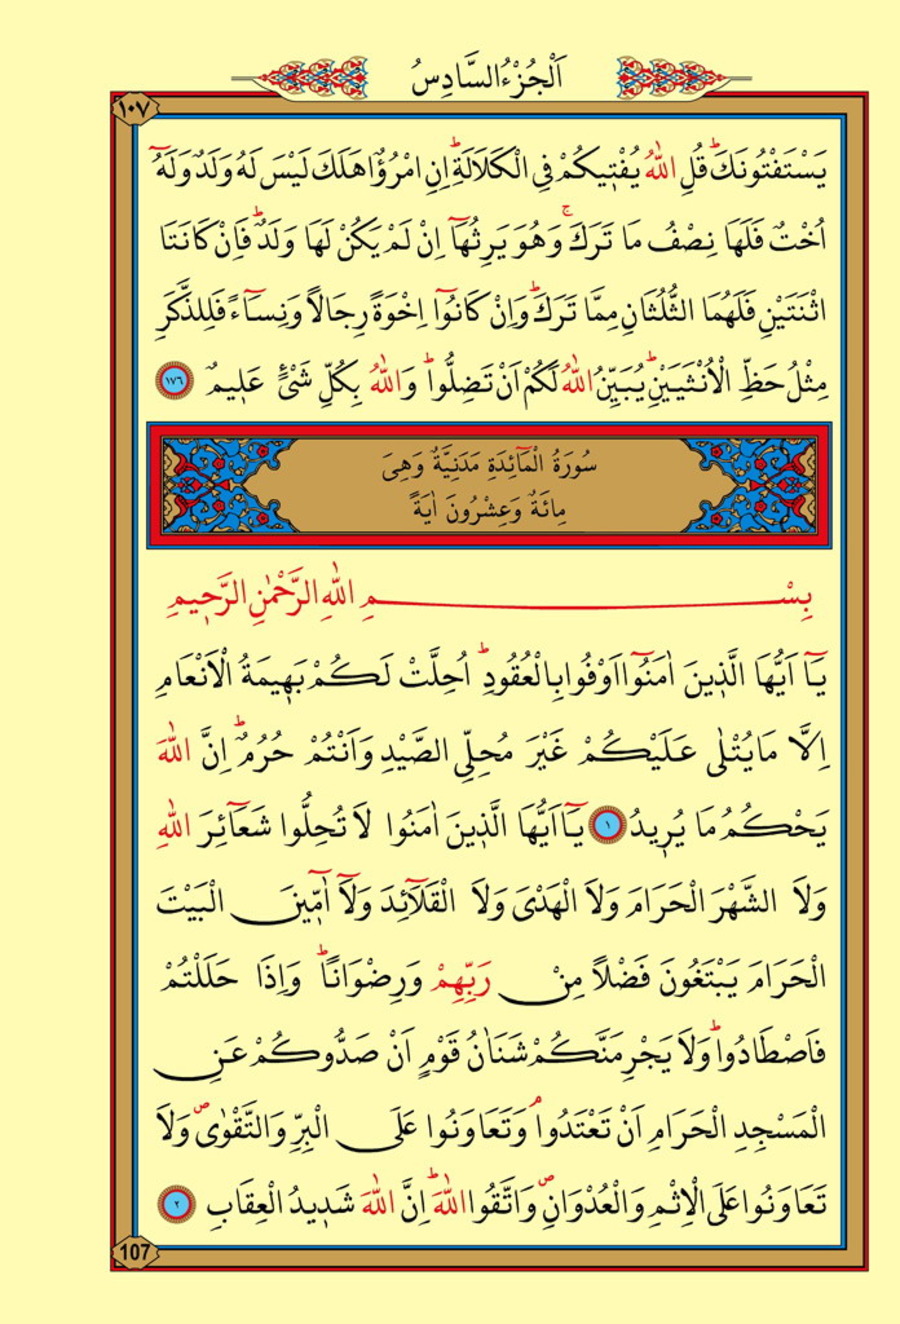 اَلْجُزْءُ السَّادِسُ
١٠٧
يَسْتَفْتُونَكَۜ قُلِ اللّٰهُ يُفْت۪يكُمْ فِي الْكَلَالَةِۜ اِنِ امْرُؤٌا هَلَكَ لَيْسَ لَهُ وَلَدٌ وَلَهُٓ
اُخْتٌ فَلَهَا نِصْفُ مَا تَرَكَۚ وَهُوَ يَرِثُهَٓا اِنْ لَمْ يَكُنْ لَهَا وَلَدٌۜ فَاِنْ كَانَتَا
اثْنَتَيْنِ فَلَهُمَا الثُّلُثَانِ مِمَّا تَرَكَۜ وَاِنْ كَانُٓوا اِخْوَةً رِجَالاً وَنِسَٓاءً فَلِلذَّكَرِ
مِثْلُ حَظِّ الْاُنْثَيَيْنِۜ يُبَيِّنُ اللّٰهُ لَكُمْ اَنْ تَضِلُّواۜ وَاللّٰهُ بِكُلِّ شَيْءٍ عَل۪يمٌ ١٧٦
سُورَةُ الْمَٓائِدَةِ مَدَنِيَّةٌ وَهِىَ
مِائَةٌ وَعِشْرُونَ اٰيَةً
بِسْمِ اللّٰهِ الرَّحْمٰنِ الرَّح۪يمِ
يَٓا اَيُّهَا الَّذ۪ينَ اٰمَنُٓوا اَوْفُوا بِالْعُقُودِۜ اُحِلَّتْ لَكُمْ بَه۪يمَةُ الْاَنْعَامِ
اِلَّا مَا يُتْلٰى عَلَيْكُمْ غَيْرَ مُحِلِّي الصَّيْدِ وَاَنْتُمْ حُرُمٌۜ اِنَّ اللّٰهَ
يَحْكُمُ مَا يُر۪يدُ ١ يَٓا اَيُّهَا الَّذ۪ينَ اٰمَنُوا لَا تُحِلُّوا شَعَٓائِرَ اللّٰهِ
وَلَا الشَّهْرَ الْحَرَامَ وَلَا الْهَدْيَ وَلَا الْقَلَٓائِدَ وَلَٓا اٰمّ۪ينَ الْبَيْتَ
الْحَرَامَ يَبْتَغُونَ فَضْلاً مِنْ رَبِّهِمْ وَرِضْوَاناًۜ وَاِذَا حَلَلْتُمْ
فَاصْطَادُواۜ وَلَا يَجْرِمَنَّكُمْ شَنَاٰنُ قَوْمٍ اَنْ صَدُّوكُمْ عَنِ
الْمَسْجِدِ الْحَرَامِ اَنْ تَعْتَدُواۢ وَتَعَاوَنُوا عَلَى الْبِرِّ وَالتَّقْوٰىۖ وَلَا
تَعَاوَنُوا عَلَى الْاِثْمِ وَالْعُدْوَانِۖ وَاتَّقُوا اللّٰهَۜ اِنَّ اللّٰهَ شَد۪يدُ الْعِقَابِ ٢
107